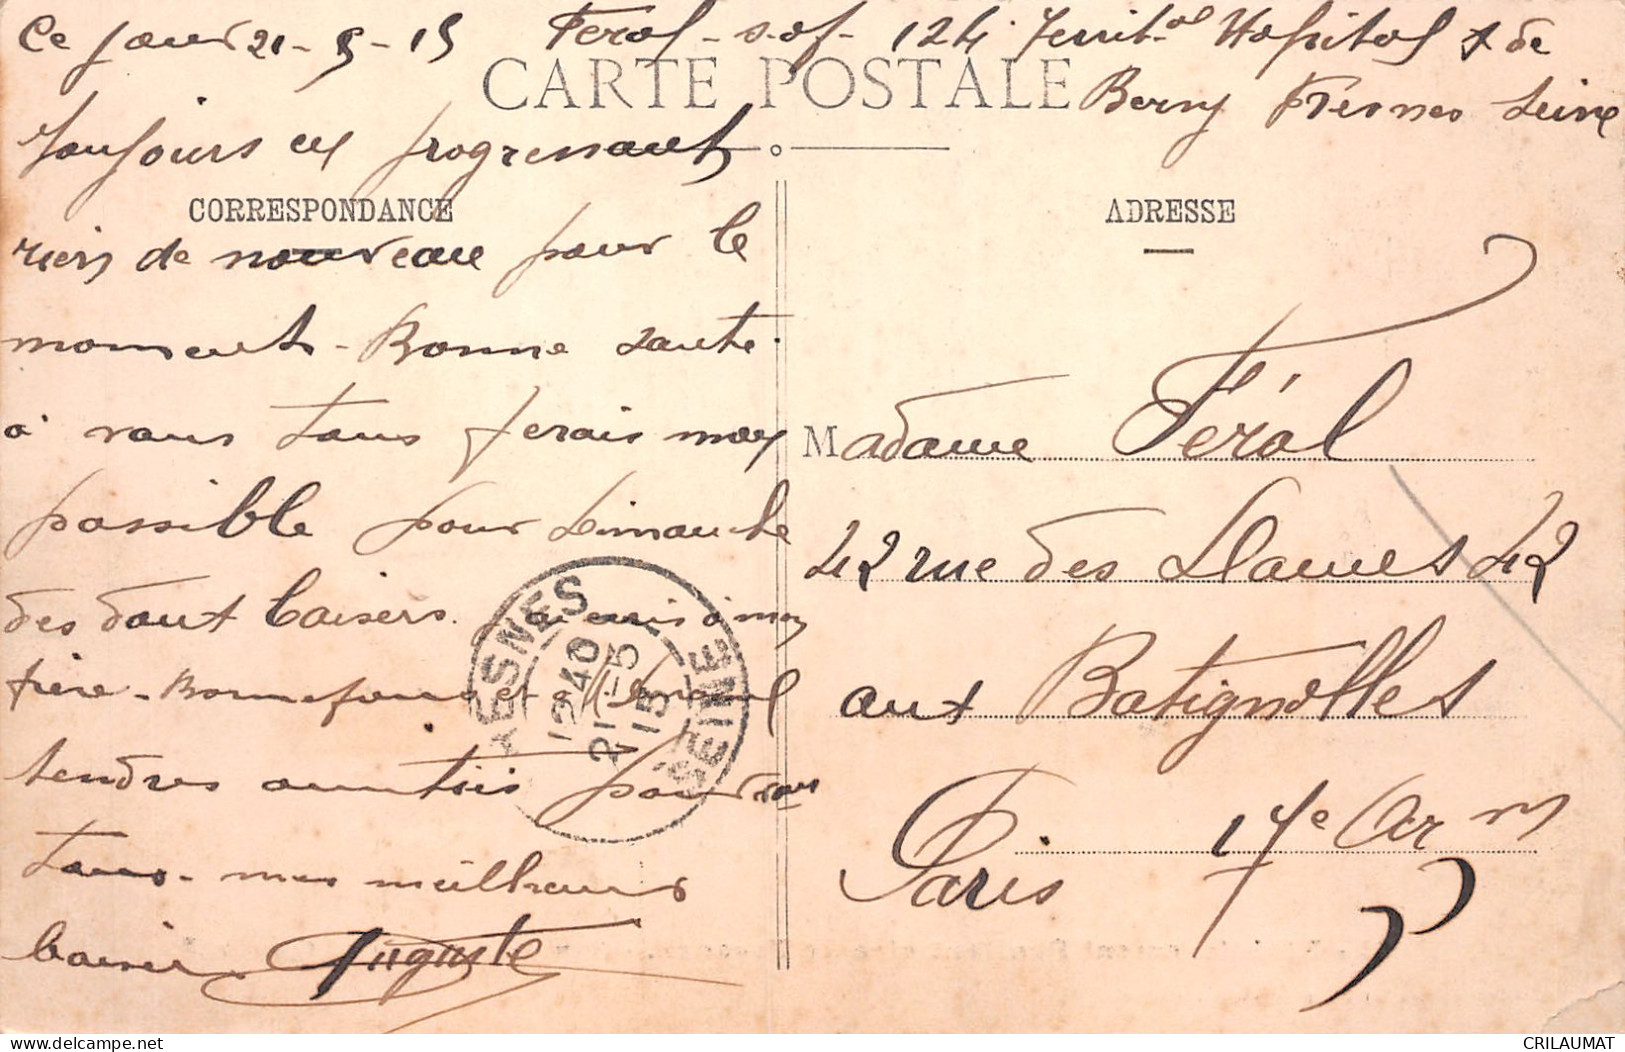 Ce jour 21-5-15 Feral - s.of - 124 Territal Hopital x de
Berny Fresnes Seine
CARTE POSTALE
toujours en progressant
CORRESPONDANCE
rien de nouveau pour le
moment - Bonne santé
à vous tous ferais mon
possible pour Dimanche
des doux baisers. à mon
frère - Bonnefous et
tendres amitiés pour vous
tous - mes meilleurs
baisers Auguste
FRESNES
SEINE
12 40
21 - 5
15
ADRESSE
Madame Féral
42 rue des Dames 42
aux Batignolles
Paris 17e Arm
delcampe.net
CRILAUMAT